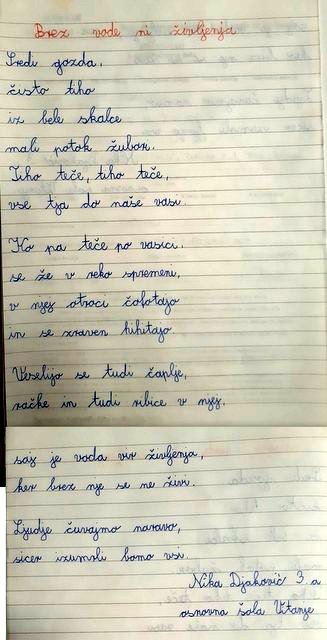 Brez vode ni življenja
Sredi gozda,
čisto tiho
iz bele skalce
mali potok žubori.
Tiho teče, tiho teče,
vse tja do naše vasi.
Ko pa teče po vasici,
se že v reko spremeni,
v njej otroci čofotajo
in se zraven hihitajo.
Veselijo se tudi čaplje,
račke in tudi ribice v njej,
saj je voda vir življenja,
ker brez nje se ne živi.
Ljudje čuvajmo naravo,
sicer izumrli bomo vsi.
Nika Djaković 3. a
osnovna šola Vitanje